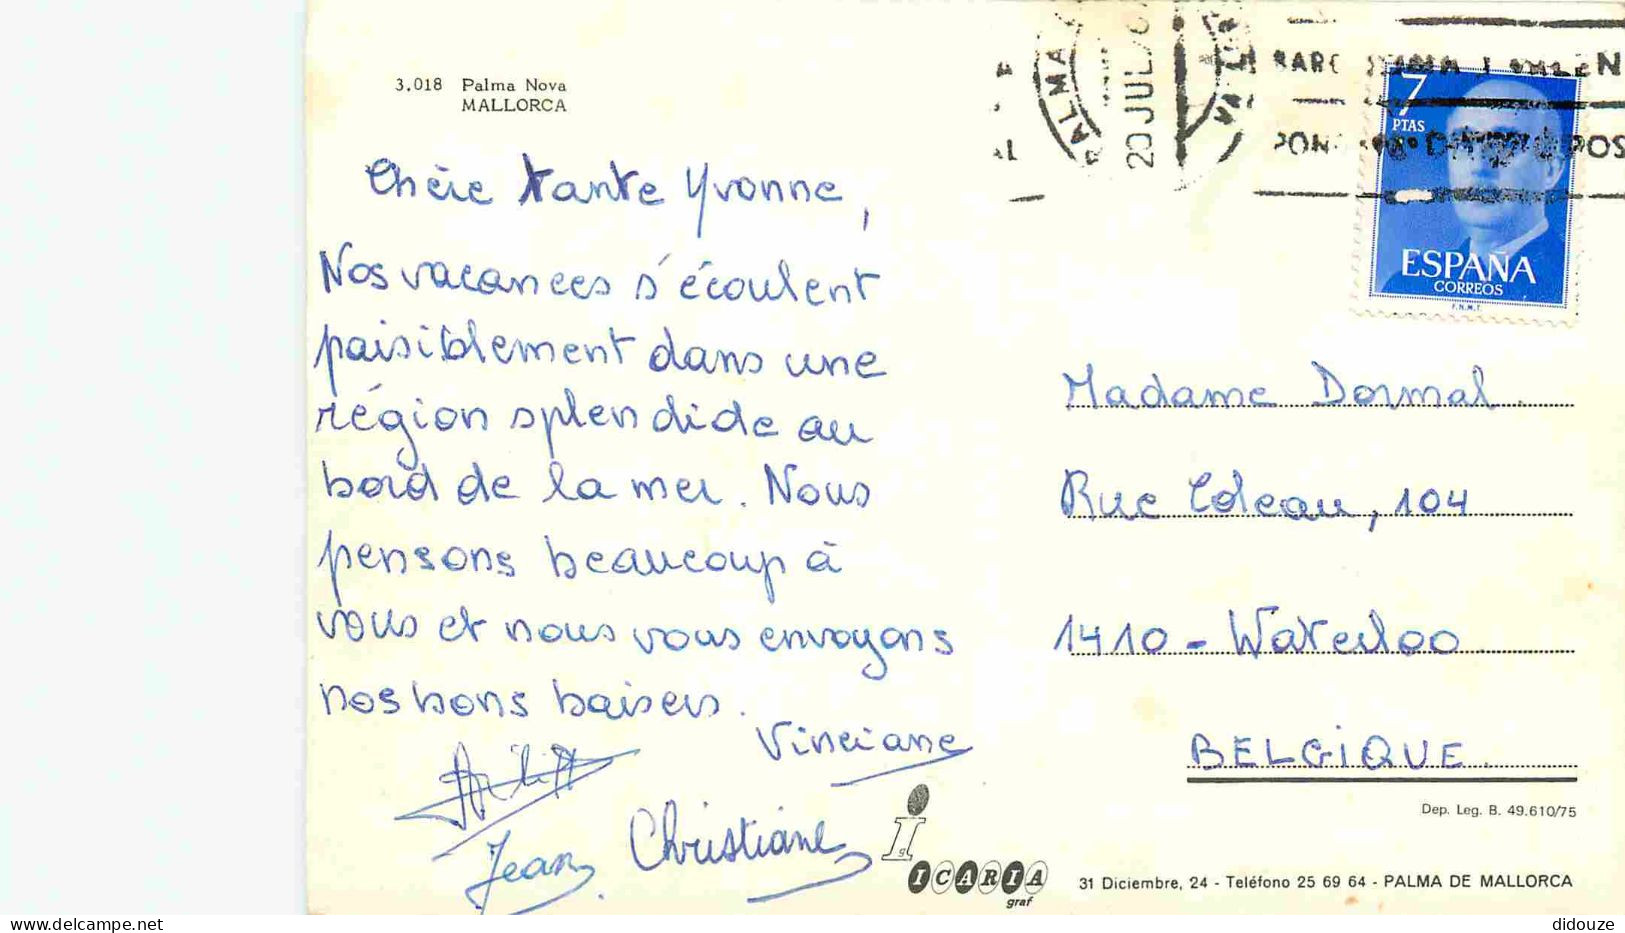 3.018 Palma Nova
MALLORCA
Chère tante Yvonne,
Nos vacances s'écoulent
paisiblement dans une
région splendide au
bord de la mer. Nous
pensons beaucoup à
vous et nous vous envoyons
nos bons baisers.
Vinciane
Jean
Christiane
PALMA
20 JUL
7
PTAS
ESPAÑA
CORREOS
F.N.M.T.
Madame Dormal
Rue Coleau, 104
1410 - Waterloo
BELGIQUE
Dep. Leg. B. 49.610/75
ICARIA
graf
31 Diciembre, 24 - Teléfono 25 69 64 - PALMA DE MALLORCA
didouze